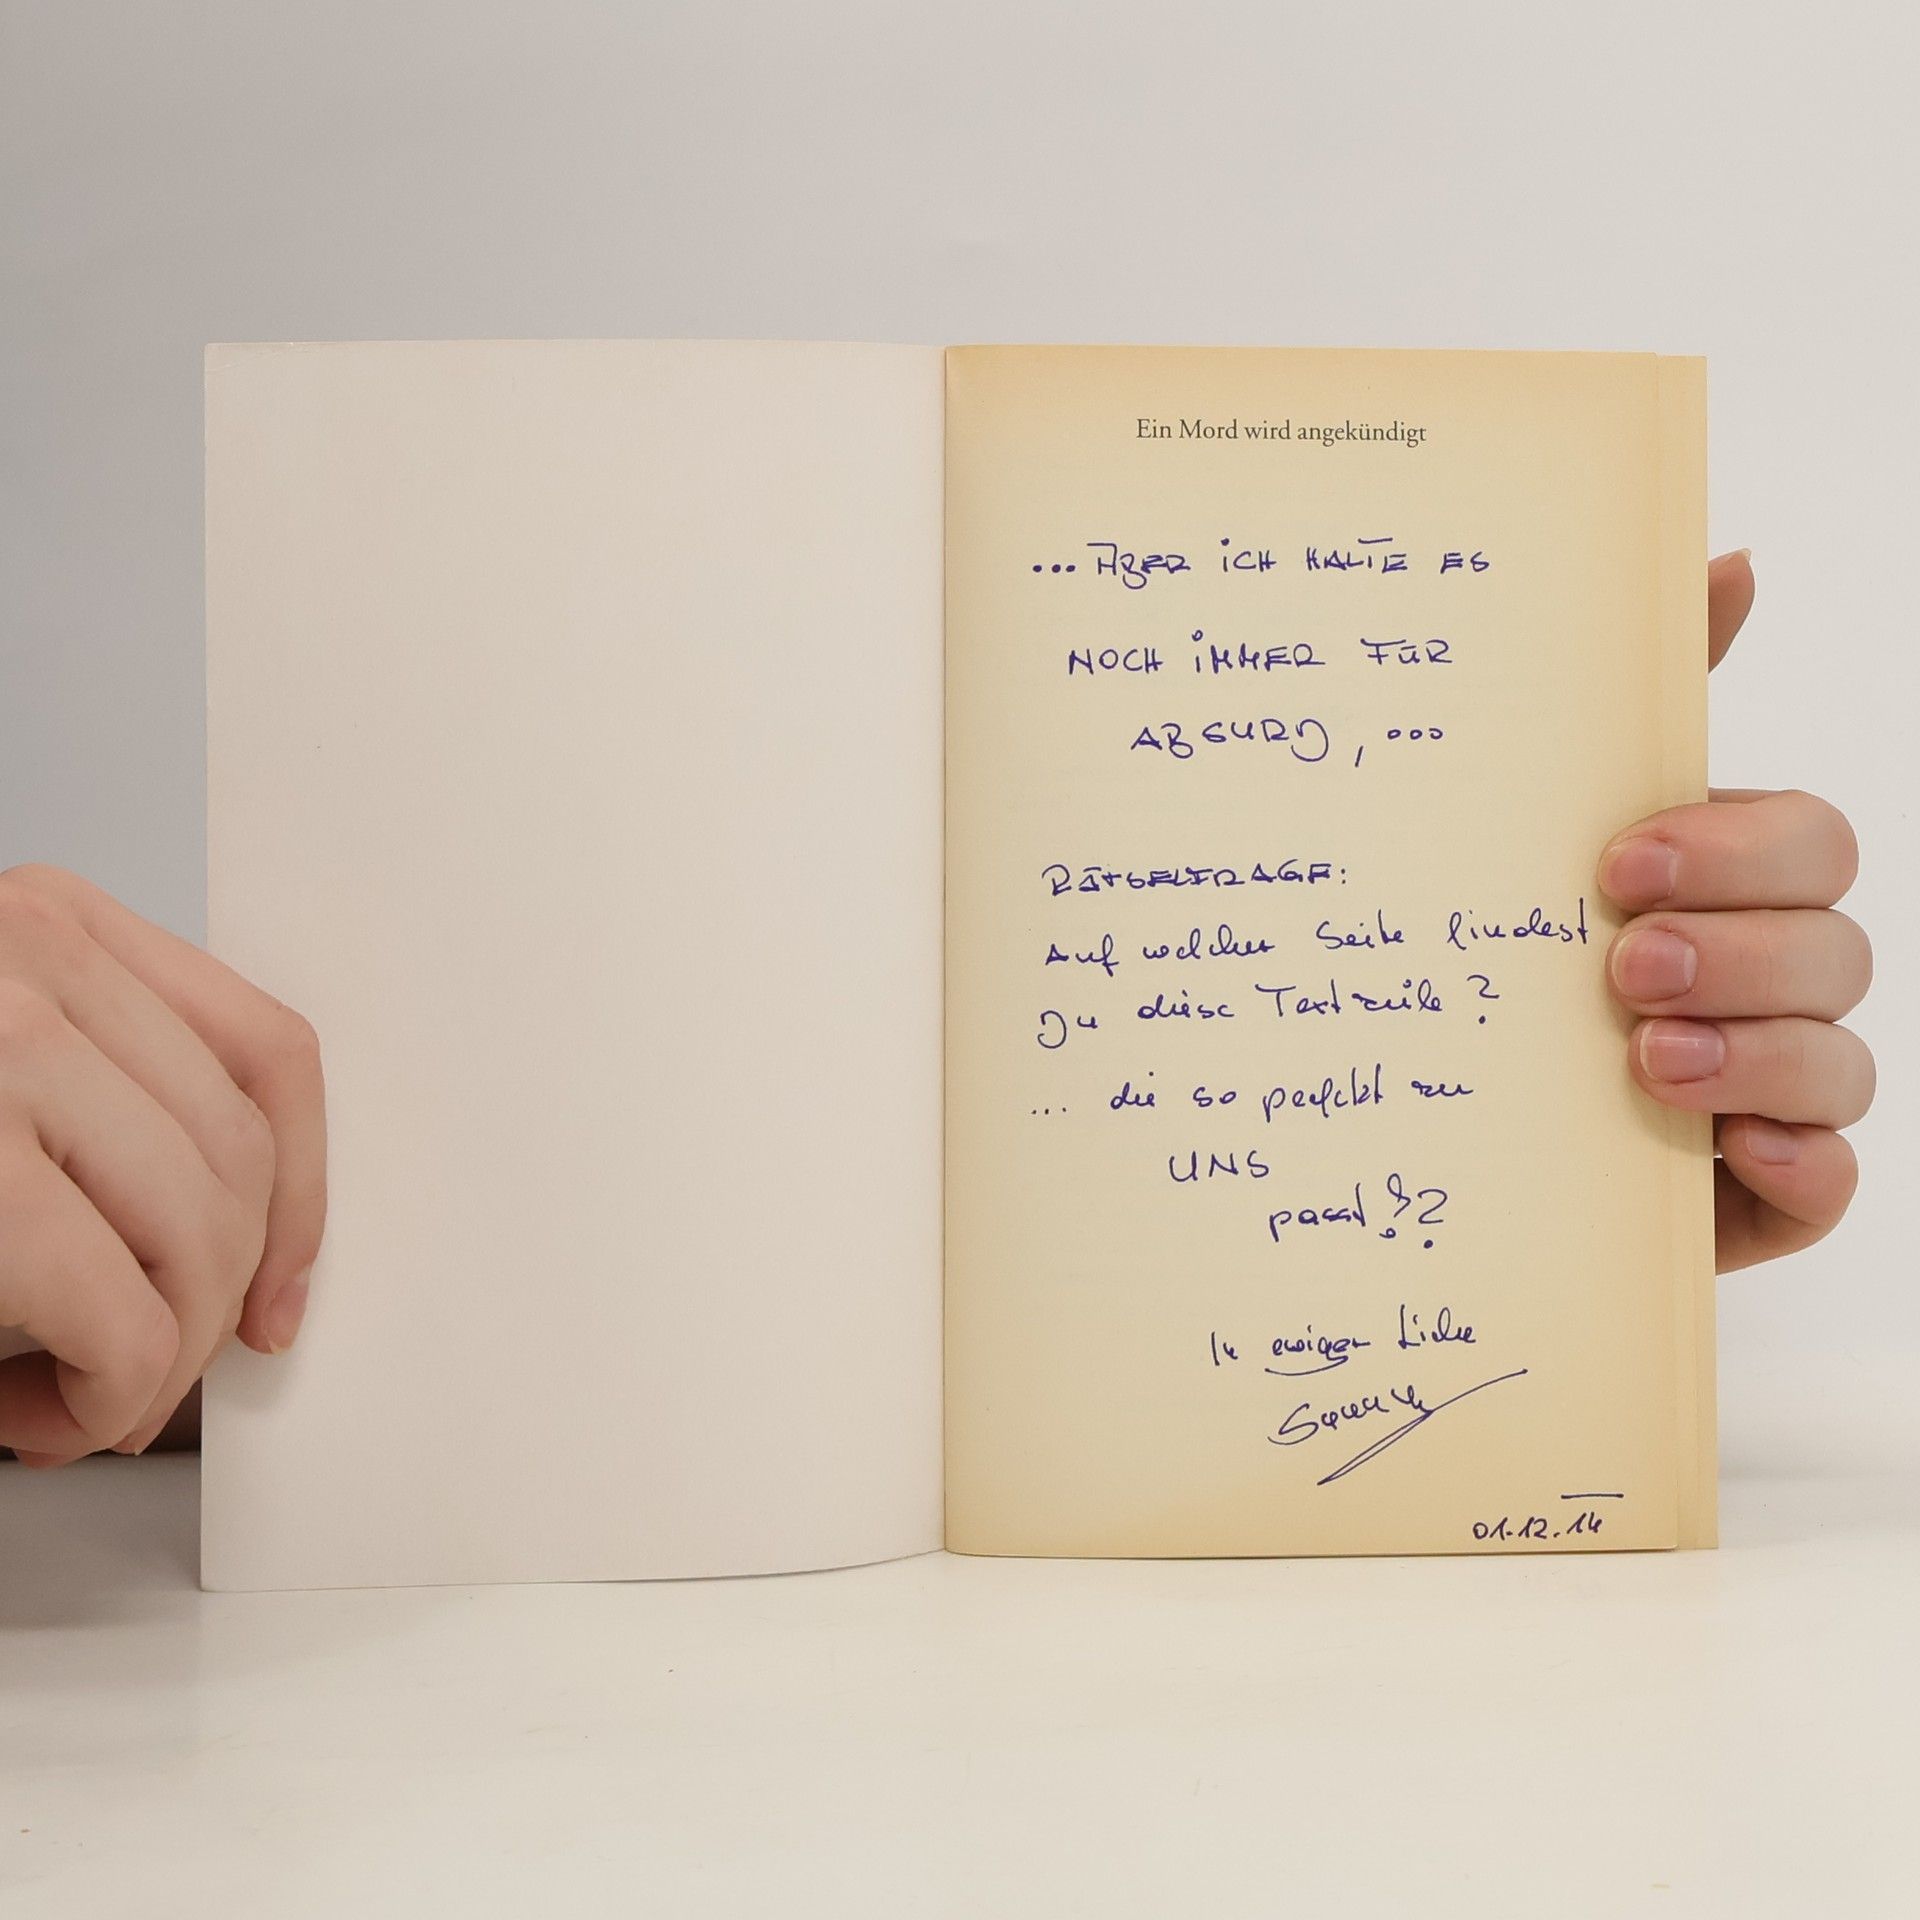 Ein Mord wird angekündigt
... ABER ICH HALTE ES
NOCH IMMER FÜR
ABSURD, ...
RÄTSELFRAGE:
Auf welcher Seite findest
Du diese Textzeile?
... die so perfekt zu
UNS
passt!?
In ewiger Liebe
01.12.14